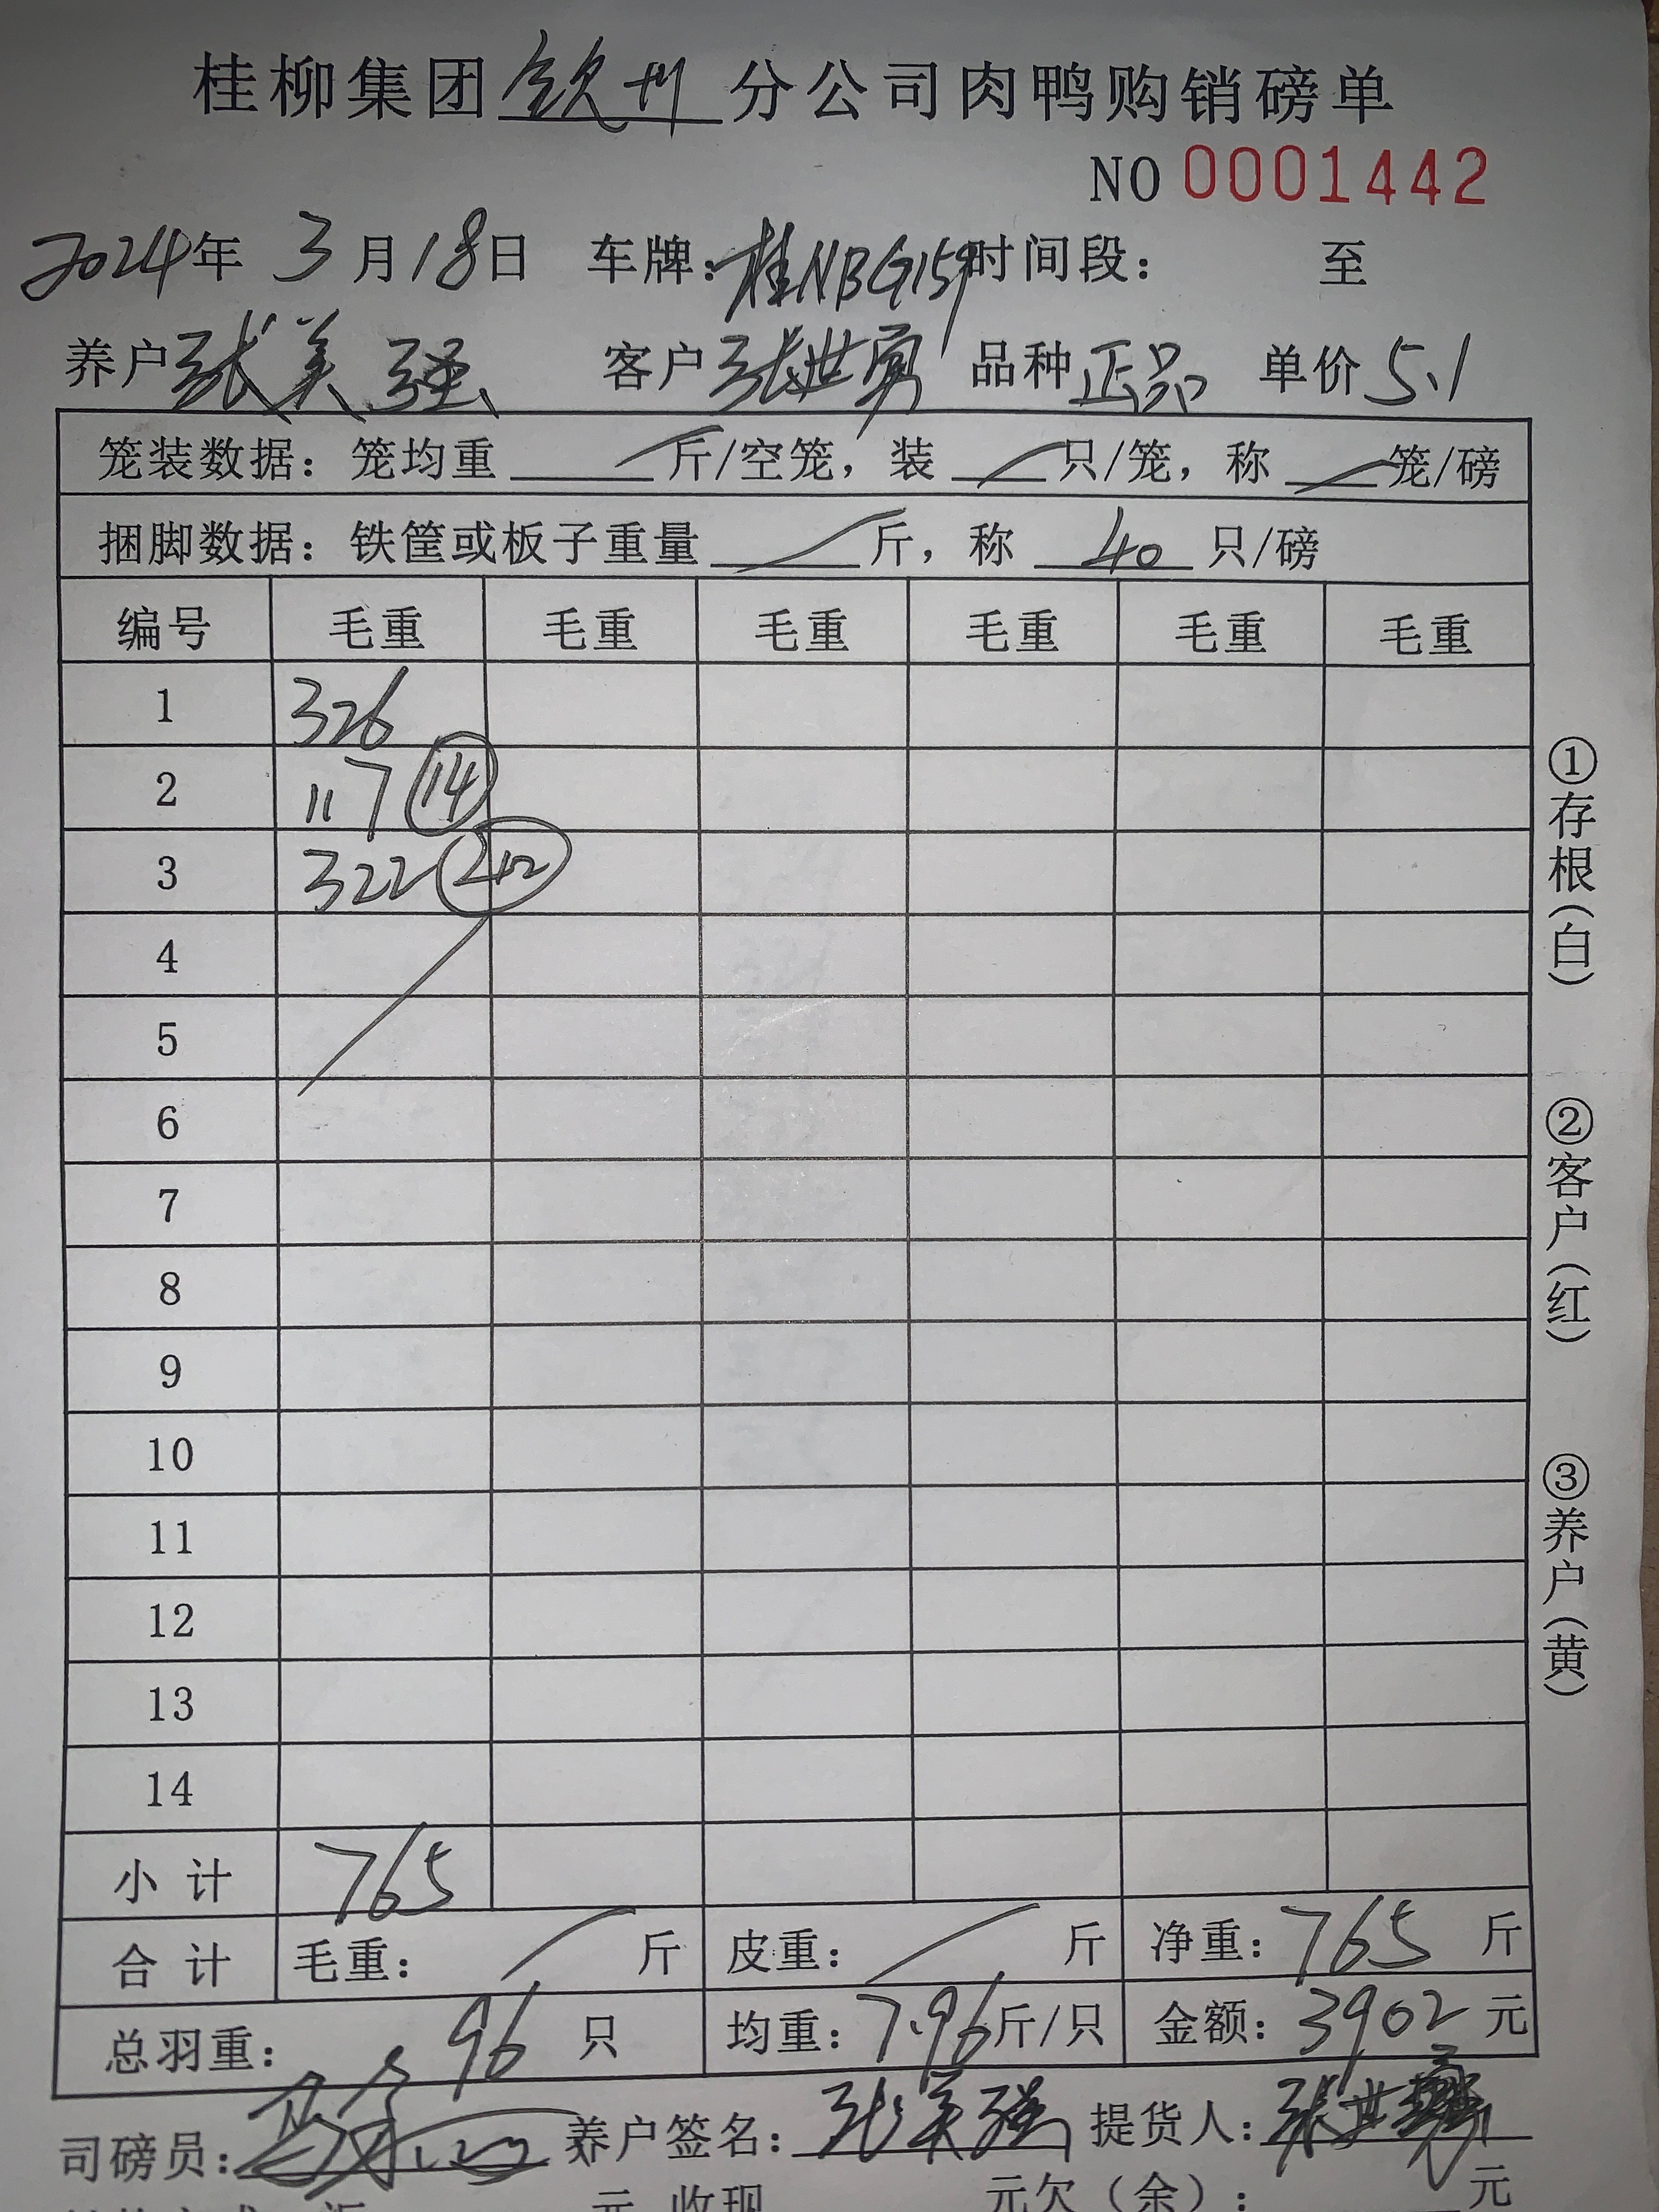 桂柳集团钦州分公司肉鸭购销磅单
NO 0001442
2024年 3月18日 车牌:桂NBG159 时间段: 至
养户 张美强 客户 张世勇 品种 正品 单价 5.1
笼装数据:笼均重 / 斤/空笼,装 / 只/笼,称 / 笼/磅
捆脚数据:铁筐或板子重量 / 斤,称 40 只/磅
编号 毛重 毛重 毛重 毛重 毛重 毛重
1 326
2 117 14
3 322 42
4
5
6
7
8
9
10
11
12
13
14
小计 765
合计 毛重: / 斤 皮重: / 斤 净重:765 斤
总羽重: 96 只 均重:7.96斤/只 金额:3902 元
司磅员: 养户签名:张美强 提货人:张世勇
元 收现 元欠(余): 元
①存根(白)
②客户(红)
③养户(黄)